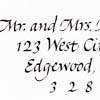 Mr. and Mrs.
123 West
Edgewood,
3 2 8